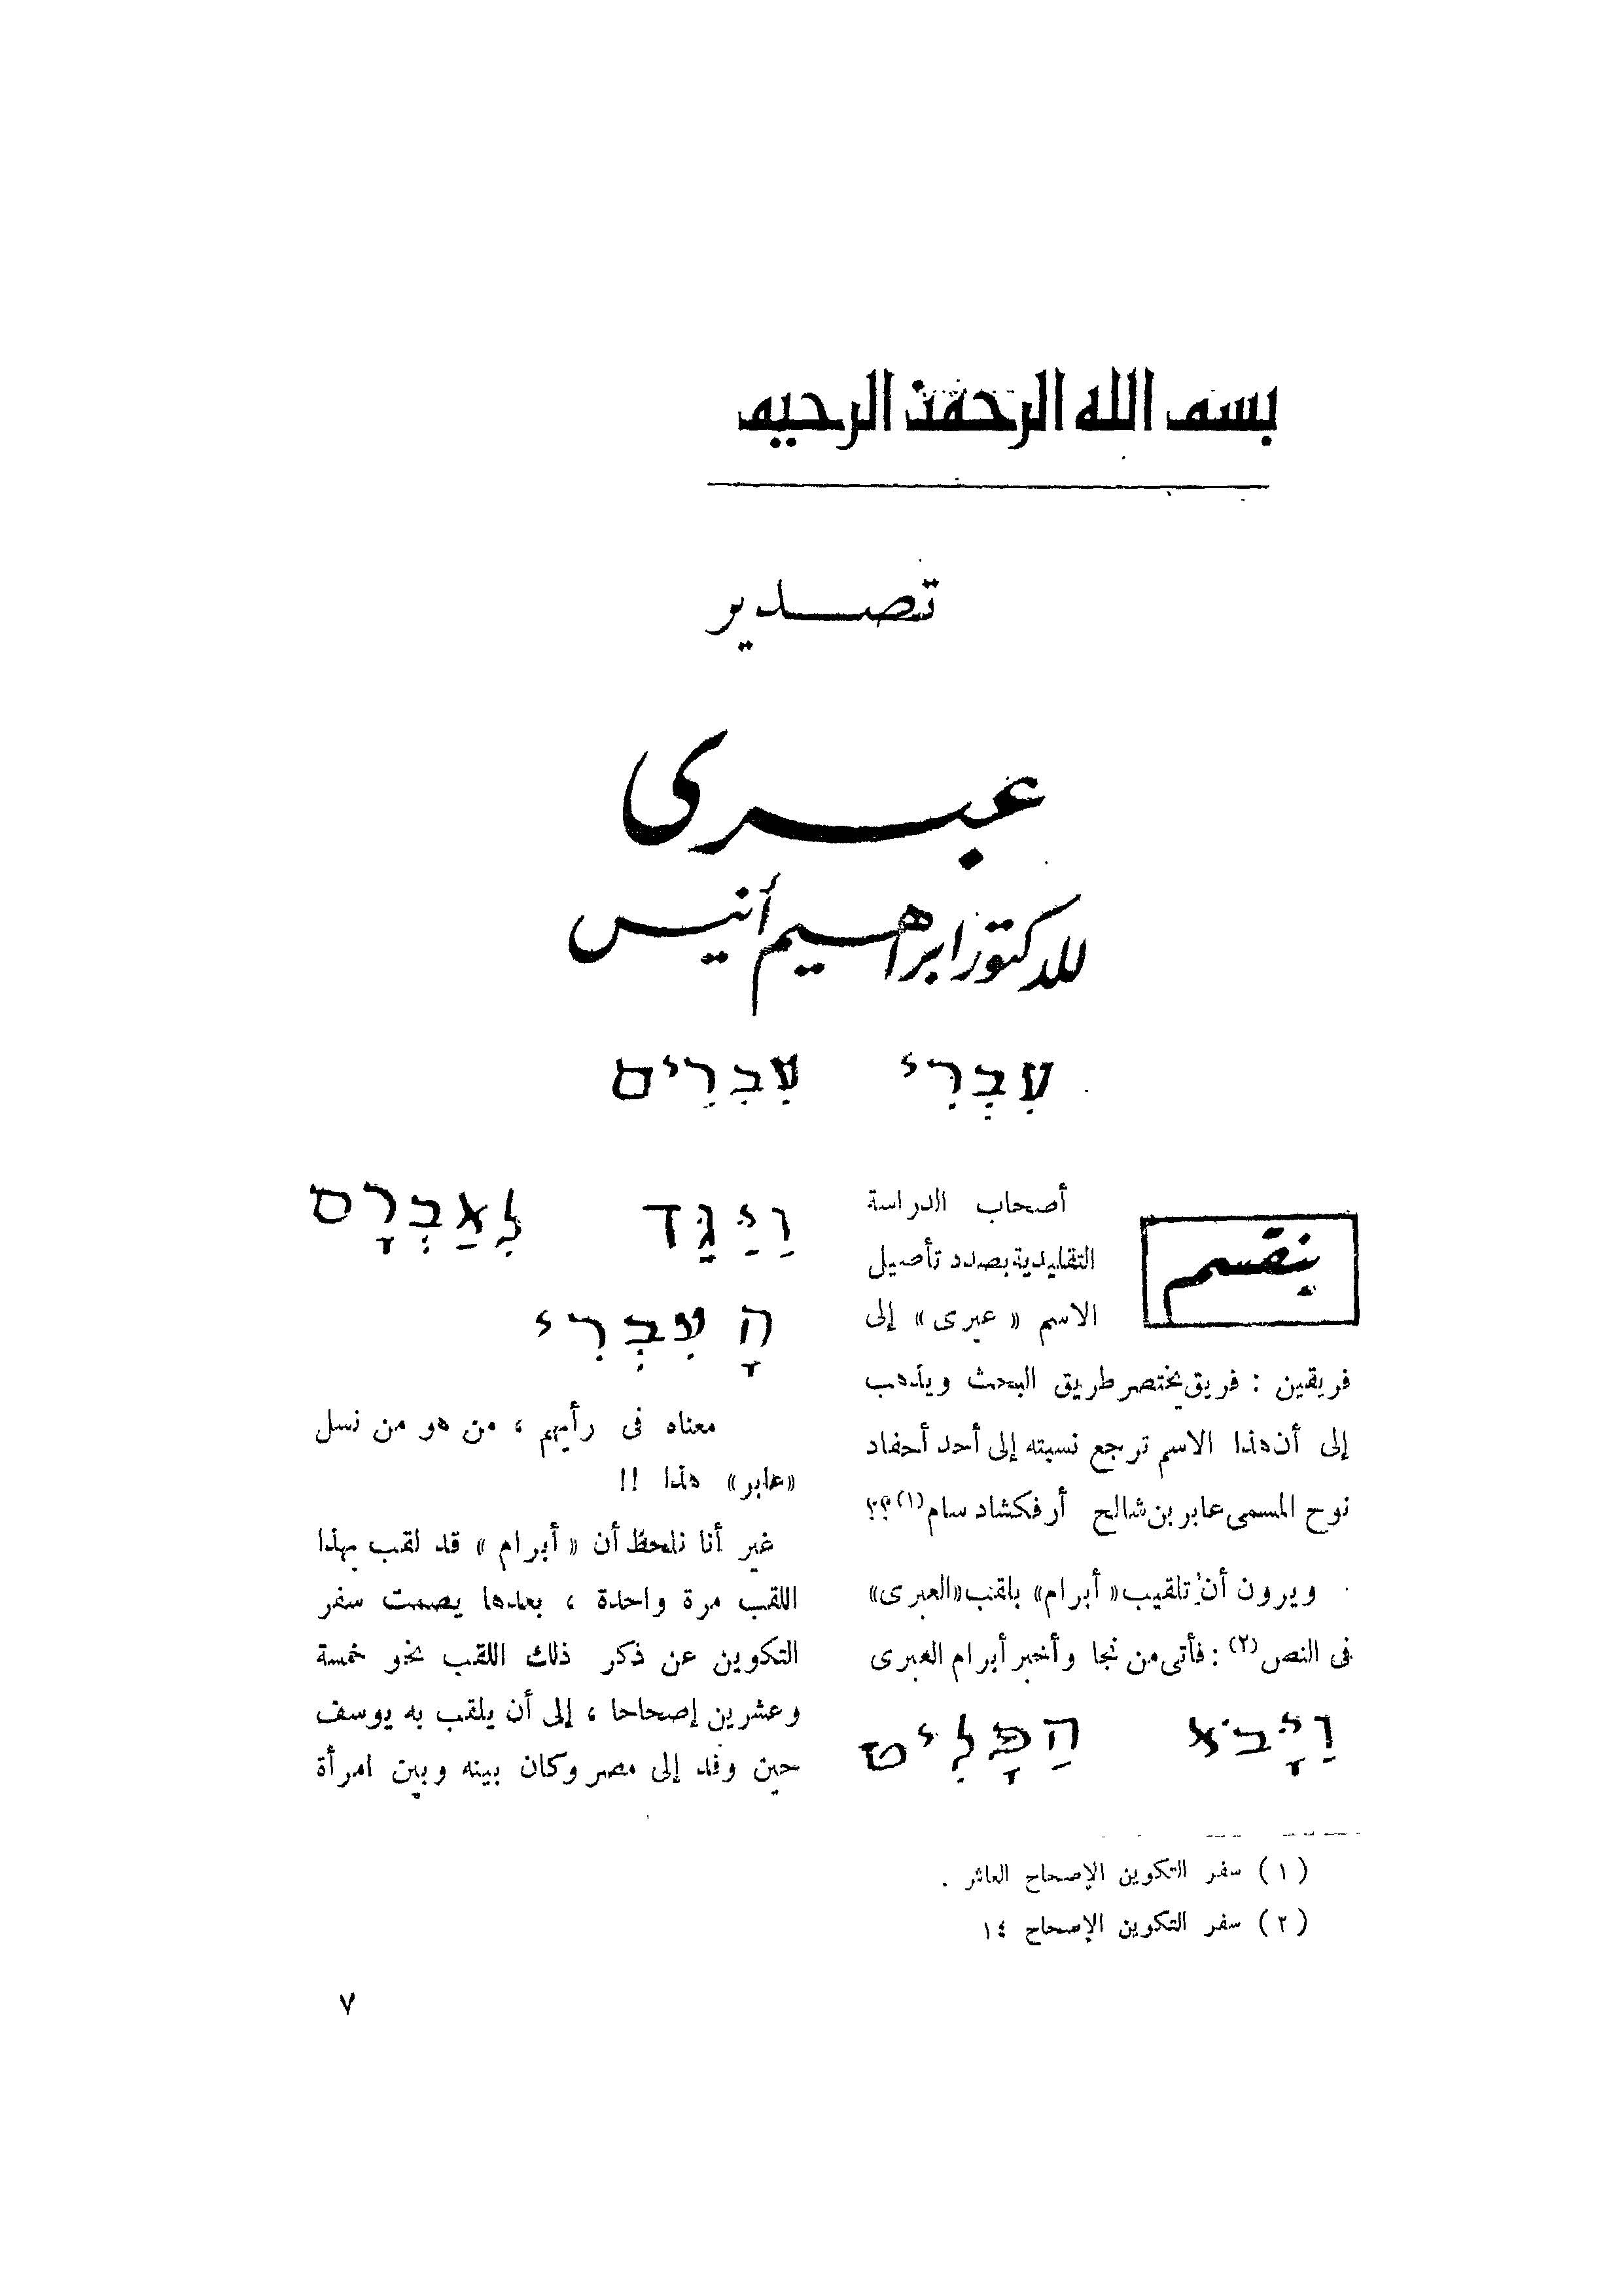 بسم الله الرحمن الرحيم
تصدير
عبرى
للدكتور ابراهيم أنيس
עִבְרִי עִבְרִים
ينقسم
أصحاب الدراسة
التقليدية بصدد تأصيل
الاسم « عبرى » إلى
فريقين : فريق يختصر طريق البحث ويذهب
إلى أن هذا الاسم ترجع نسبته إلى أحد أحفاد
نوح المسمى عابر بن شالح أرفكشاد سام (١) ؟؟
ويرون أن تلقيب « أبرام » بلقب « العبرى »
فى النص (٢) : فأتى من نجا وأخبر أبرام العبرى
וַיָּבֹא הַפָּלִיט
וַיַּגֵּד לְאַבְרָם
הָעִבְרִי
معناه فى رأيهم ، من هو من نسل
« عابر » هذا !!
غير أنا نلحظ أن « أبرام » قد لقب بهذا
اللقب مرة واحدة ، بعدها يصمت سفر
التكوين عن ذكر ذلك اللقب نحو خمسة
وعشرين إصحاحا ، إلى أن يلقب به يوسف
حين وفد إلى مصر وكان بينه وبين امرأة
(١) سفر التكوين الإصحاح العاشر .
(٢) سفر التكوين الإصحاح ١٤
٧